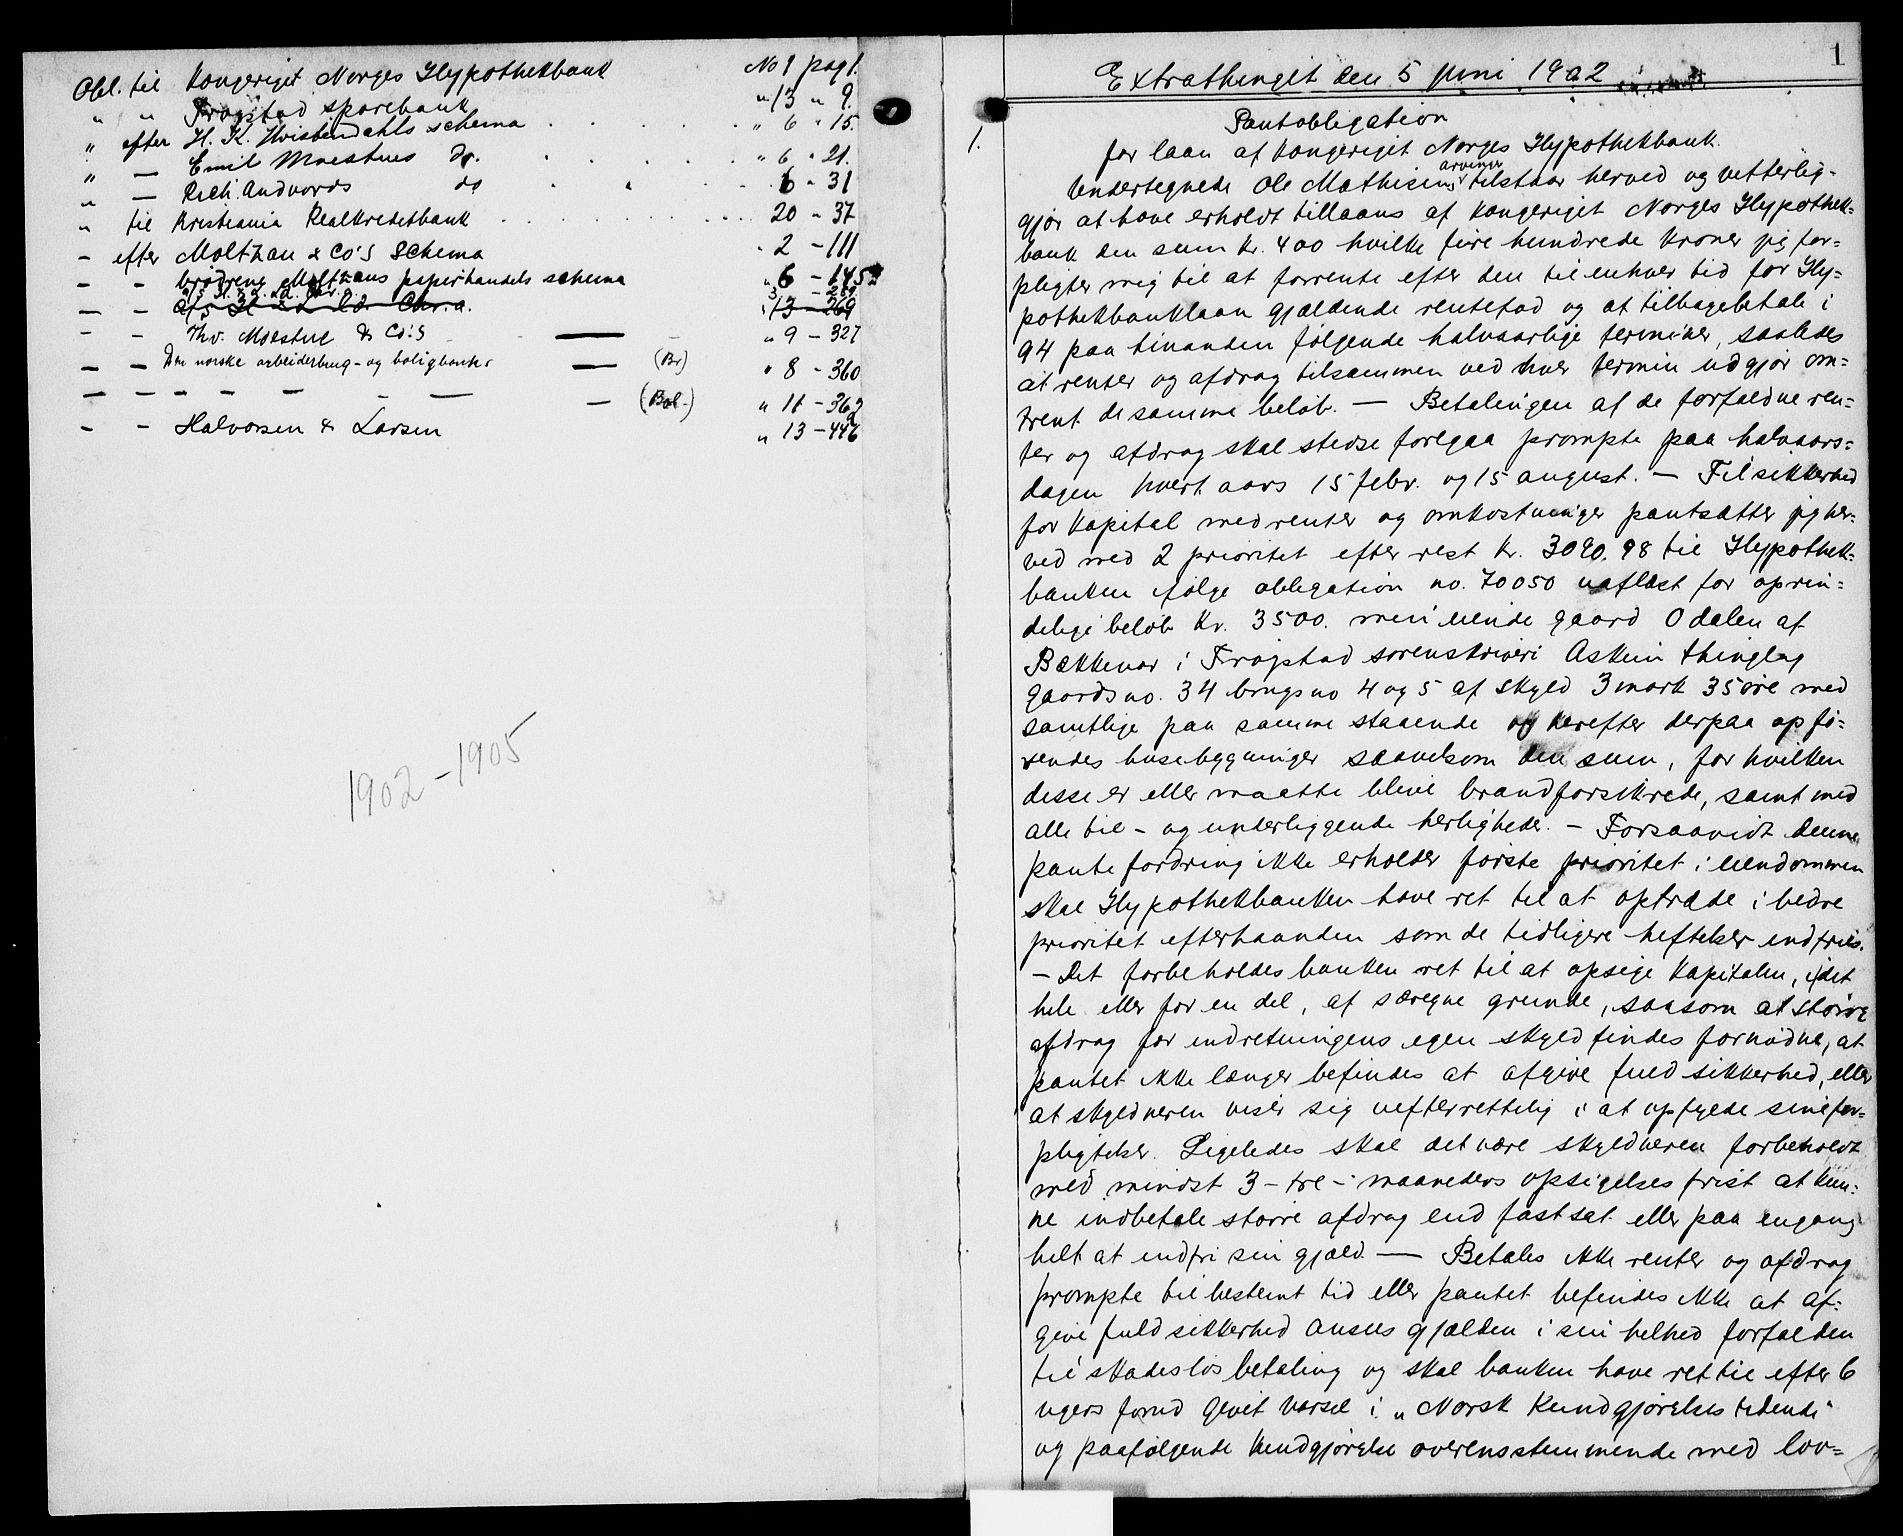 Obl. til Kongeriget Norges Hypothekbank No 1 pag 1.
" " Frogstad sparebank " 13 " 9.
" efter H. K. Hvistendahls schema " 6 " 15.
" — Emil Moestues do. " 6 " 21.
" — Rich. Andvords do 6 " 31
" til Kristiania Realkreditbank 20 " 37
— efter Molthau & Co's schema " 2 — 111
— — brødrene Molthaus papirhandels schema " 6 — 145
— — Thv. Moestue & Co's — " 9 — 327
— — Den norske arbeiderbrug- og boligbanks — (Br) " 8 — 360
— — — — — — — — (Bol.) " 11 — 362
— — Halvorsen & Larsen " 13 — 446
1902-1905
1
Extrathinget den 5 juni 1902
1.
Pantobligation
for laan af Kongeriget Norges Hypothekbank.
arvinger
Undertegnede Ole Mathisens tilstaar herved og vitterlig-
gjør at have erholdt tillaans af Kongeriget Norges Hypothek=
bank den sum kr. 400 hvilke fire hundrede kroner jeg for=
pligter mig til at forrente efter den til enhver tid for Hy=
pothekbanklaan gjældende rentefod og at tilbagebetale i
94 paa hinanden følgende halvaarlige terminer, saaledes
at renter og afdrag tilsammen ved hver termin udgjør om=
trent de samme beløb. — Betalingen af de forfaldne ren=
ter og afdrag skal stedse foregaa prompte paa halvaars=
dagen hvert aars 15 febr. og 15 august. — Til sikkerhed
for kapital med renter og omkostninger pantsætter jeg her=
ved med 2 prioritet efter rest kr. 3090.98 til Hypothek=
banken ifølge obligation no. 70050 uaflæst for oprin=
delige beløb Kr. 3500. min eiende gaard Odalen af
Bækkevar i Frogstad sorenskriveri Askim thinglag
gaards no. 34 brugsno 4 og 5 af skyld 3 mark 35 øre med
samtlige paa samme staaende og herefter derpaa opfø=
rendes husebygninger saavelsom den sum, for hvilken
disse er eller maatte blive brandforsikrede, samt med
alle til- og underliggende herligheder. — Forsaavidt denne
pantefordring ikke erholder første prioritet i eiendommen
skal Hypothekbanken have ret til at optræde i bedre
prioritet efterhaanden som de tidligere heftelser indfries.
— Det forbeholdes banken ret til at opsige kapitalen, i det
hele eller for en del, af særegne grunde, saasom at større
afdrag for indretningens egen skyld findes fornødne, at
pantet ikke længer befindes at afgive fuld sikkerhed, eller
at skyldneren viser sig uefterrettelig i at opfylde sine for=
pligtelser. Ligeledes skal det være skyldneren forbeholdt
med mindst 3 - tre - maaneders opsigelses frist at kun=
ne indbetale større afdrag end fastsat eller paa engang
helt at indfri sin gjæld — Betales ikke renter og afdrag
prompte til bestemt tid eller pantet befindes ikke at af=
give fuld sikkerhed ansees gjælden i sin helhed forfalden
til skadesløs betaling og skal banken have ret til efter 6
ugers forud givet varsel i „Norsk Kundgjørelses tidende"
og paafølgende kundgjørelse overensstemmende med lov=